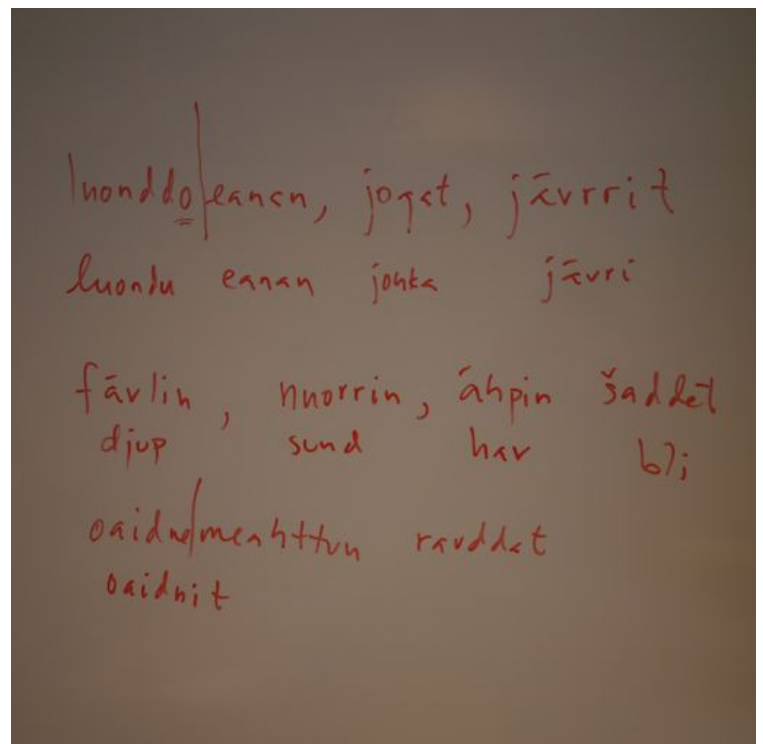 luonddo|eanan, jogat, jávrrit
luondu eanan johka jávri
fávlin, nuorrin, áhpin šaddet
djup sund hav bli
oaidne|meahttun ravddat
oaidnit